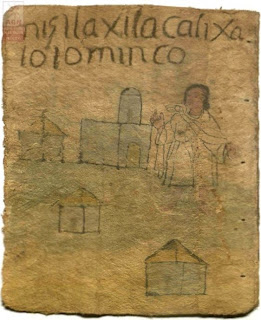 nis tlaxilacalixa
totominco